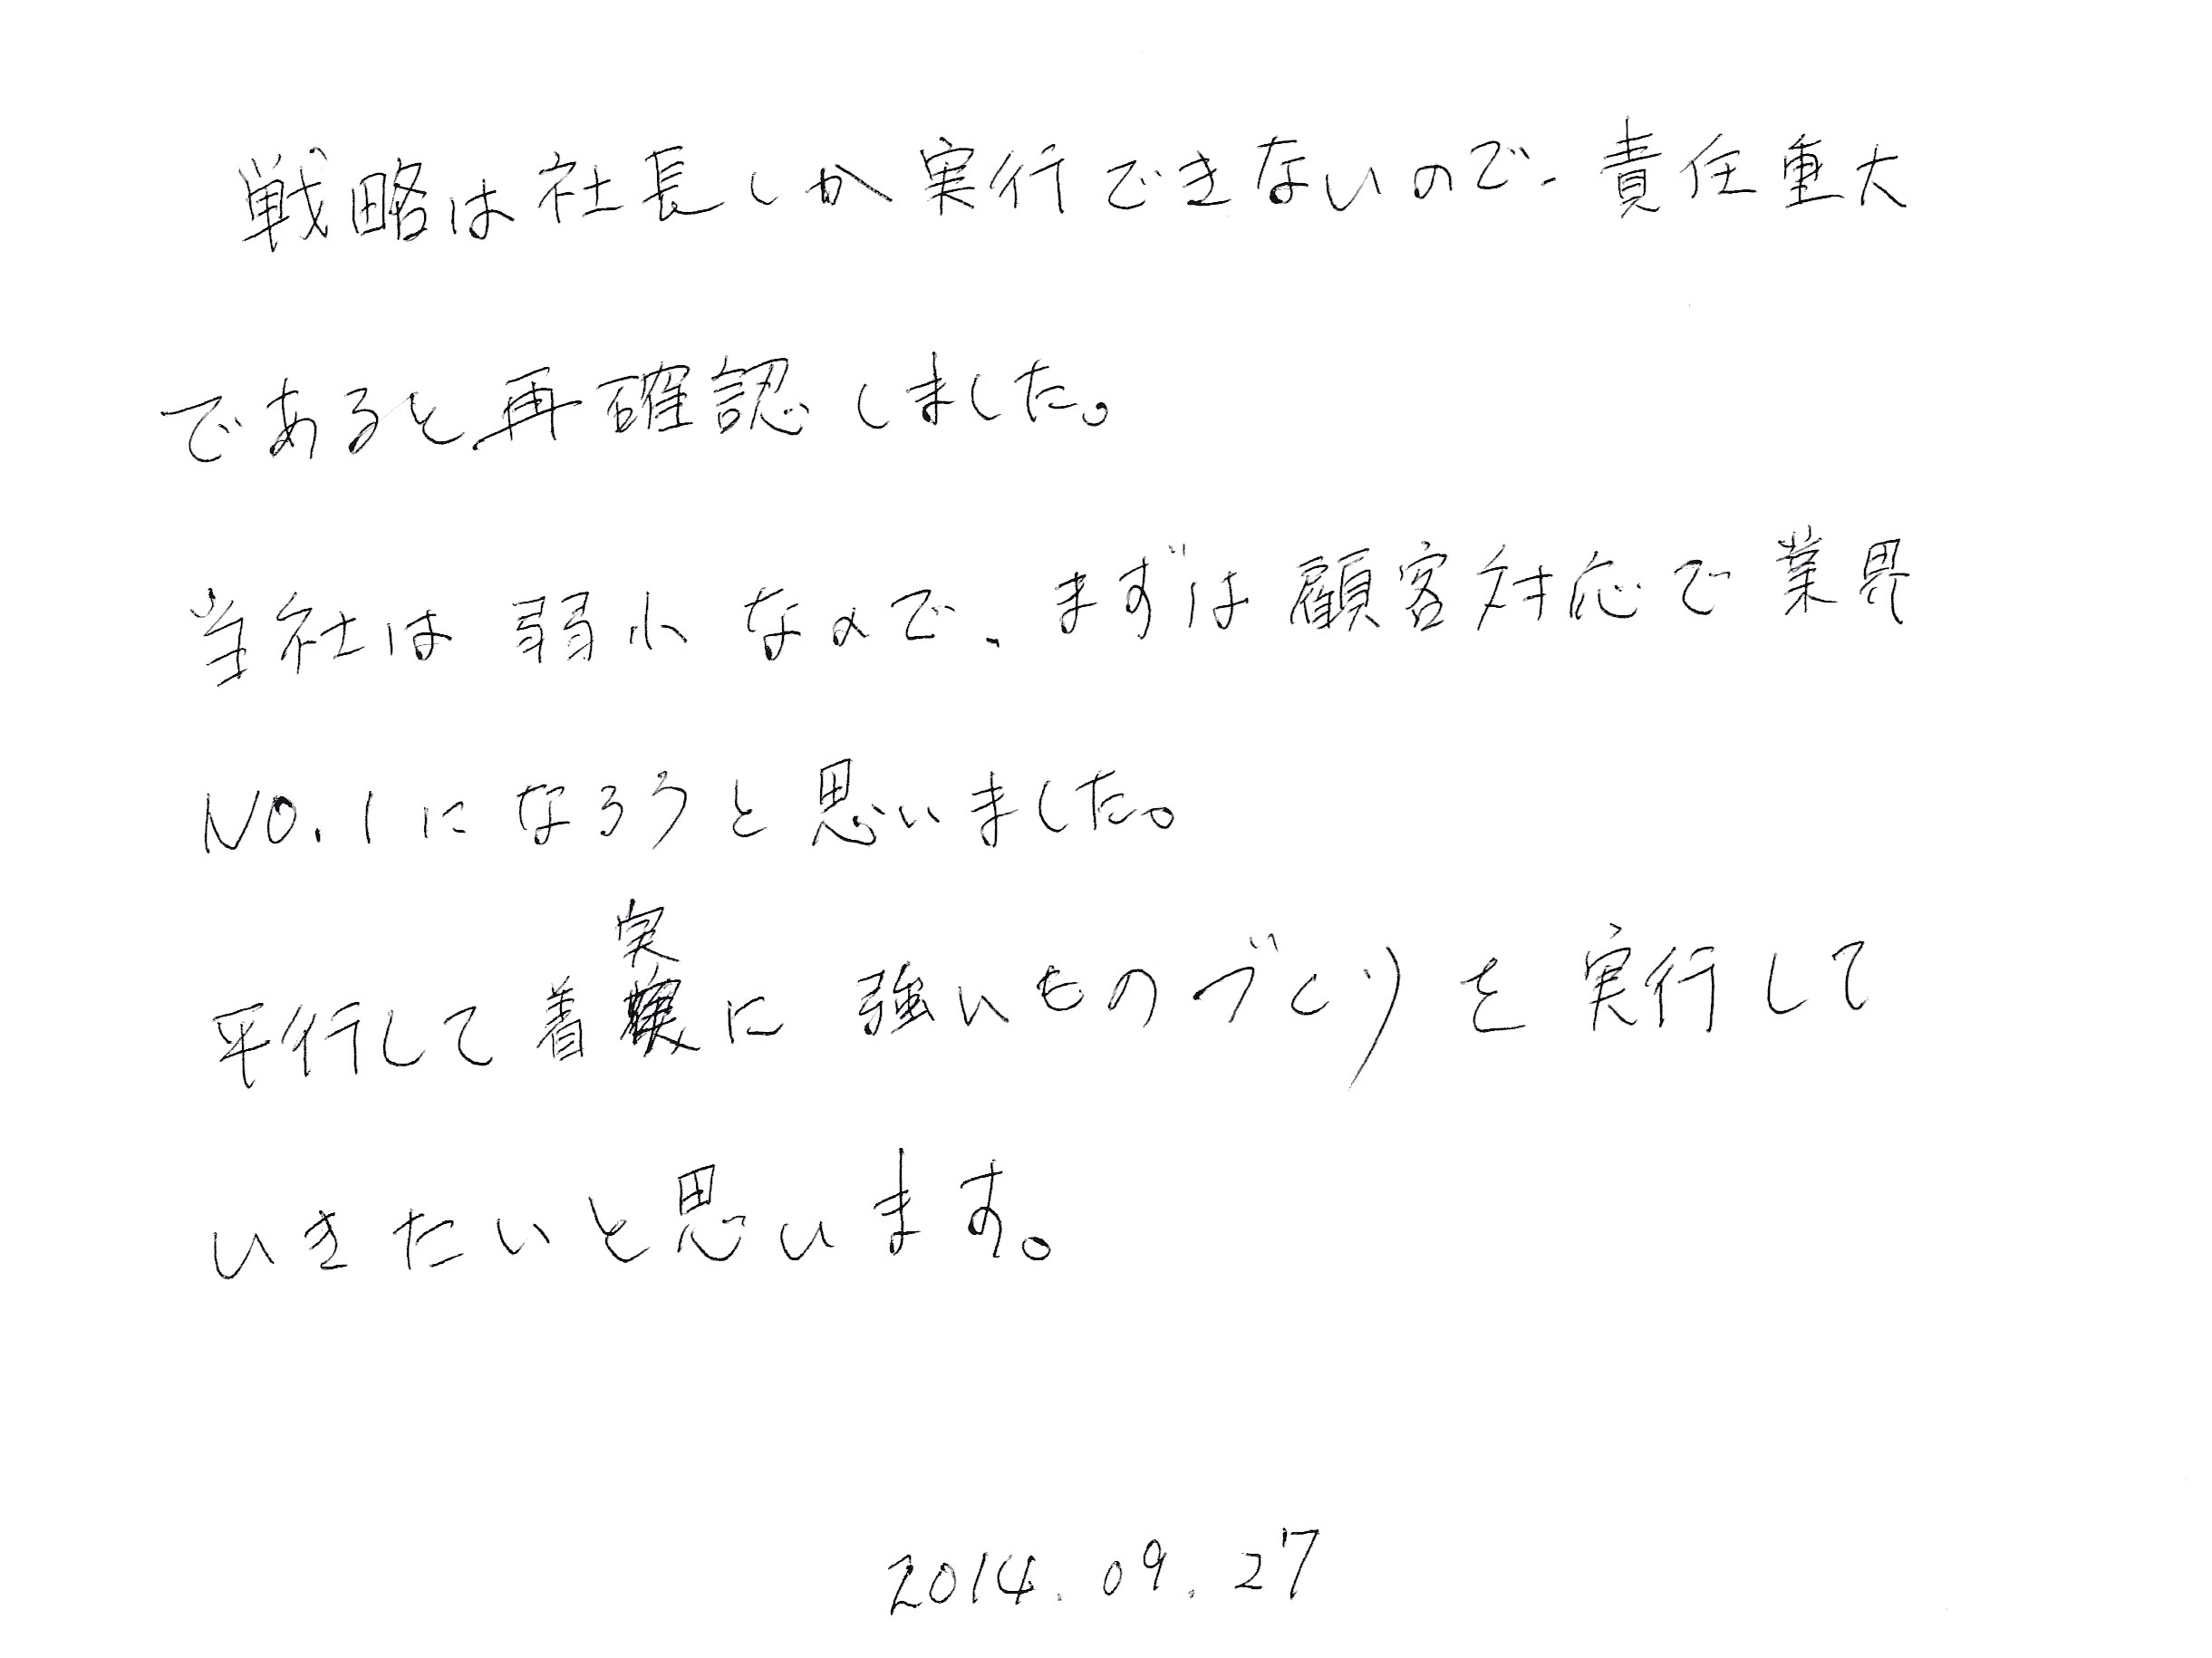 戦略は社長しか実行できないので、責任重大
であると再確認しました。
当社は弱小なので、まずは顧客対応で業界
NO.1になろうと思いました。
平行して着実に強いものづくりを実行して
いきたいと思います。
2014.09.27